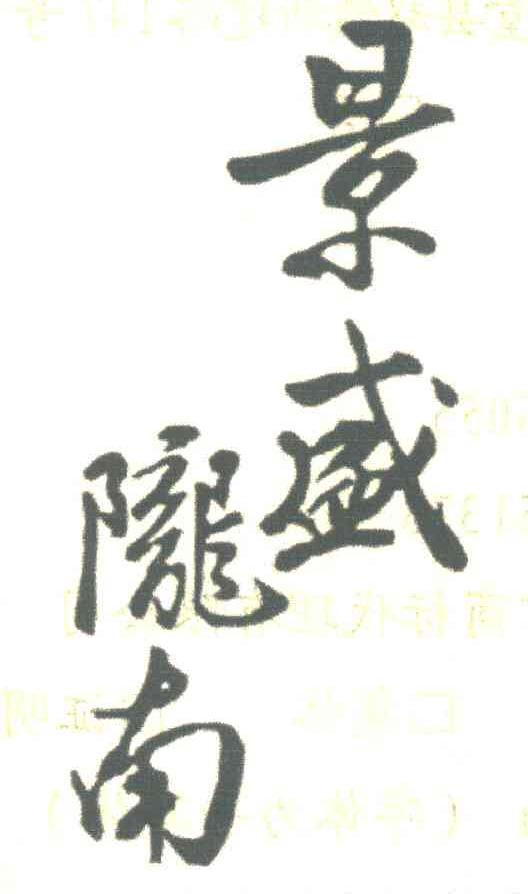 景盛
隴南